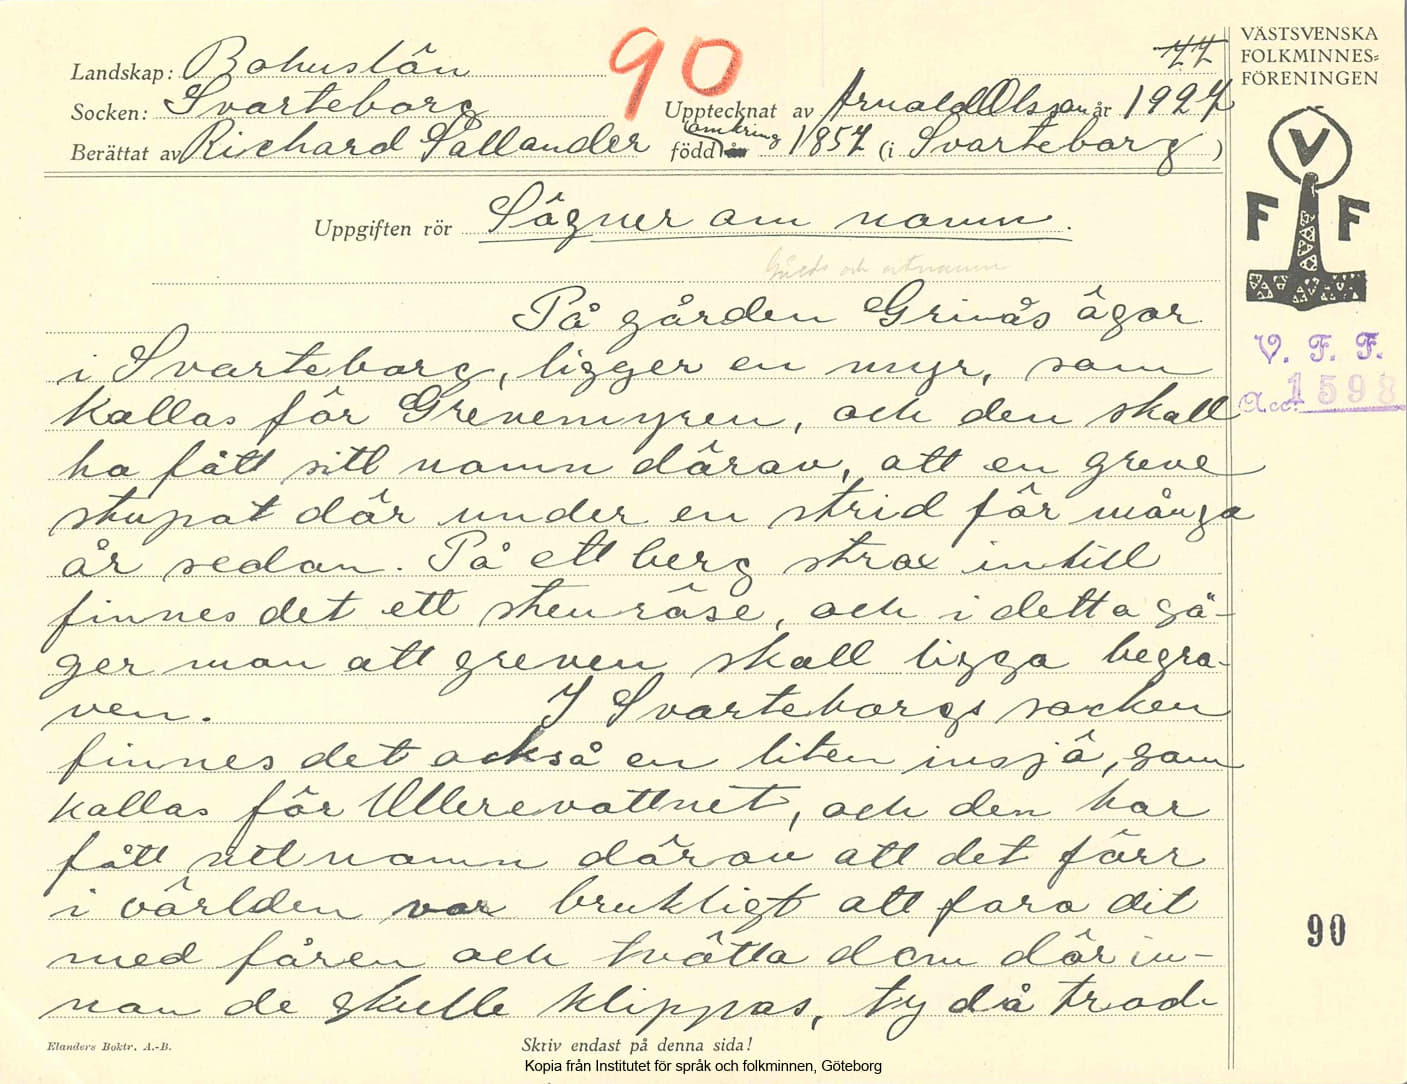 VÄSTSVENSKA
FOLKMINNES=
FÖRENINGEN
90
77
Landskap: Bohuslän
Socken: Svarteborg Upptecknat av Arnold Olsson år 1927
Berättat av Richard Sallander född omkring 1857 (i Svarteborg)
Uppgiften rör Sägner om namn.
Gårds och ortnamn
V
F F
V. F. F.
Acc. 1598
På gården Grinås ägor
i Svarteborg, ligger en myr, som
kallas för Grevemyren, och den skall
ha fått sitt namn därav, att en greve
stupat där under en strid för många
år sedan. På ett berg strax intill
finnes det ett stenröse, och i detta sä-
ger man att greven skall ligga begra-
ven. I Svarteborgs socken
finnes det också en liten insjö, som
kallas för Ullerevattnet, och den har
fått sitt namn därav att det förr
i världen var brukligt att fara dit
med fåren och tvätta dom där in-
nan de skulle klippas, ty då trod-
90
Elanders Boktr. A.-B. Skriv endast på denna sida!
Kopia från Institutet för språk och folkminnen, Göteborg